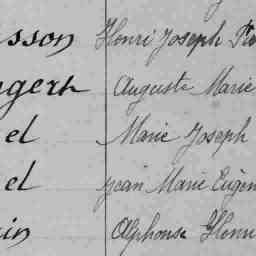 sson Henri Joseph
ngerh Auguste Marie
el Marie Joseph
el Jean Marie Eugèn
in Alphonse Henri